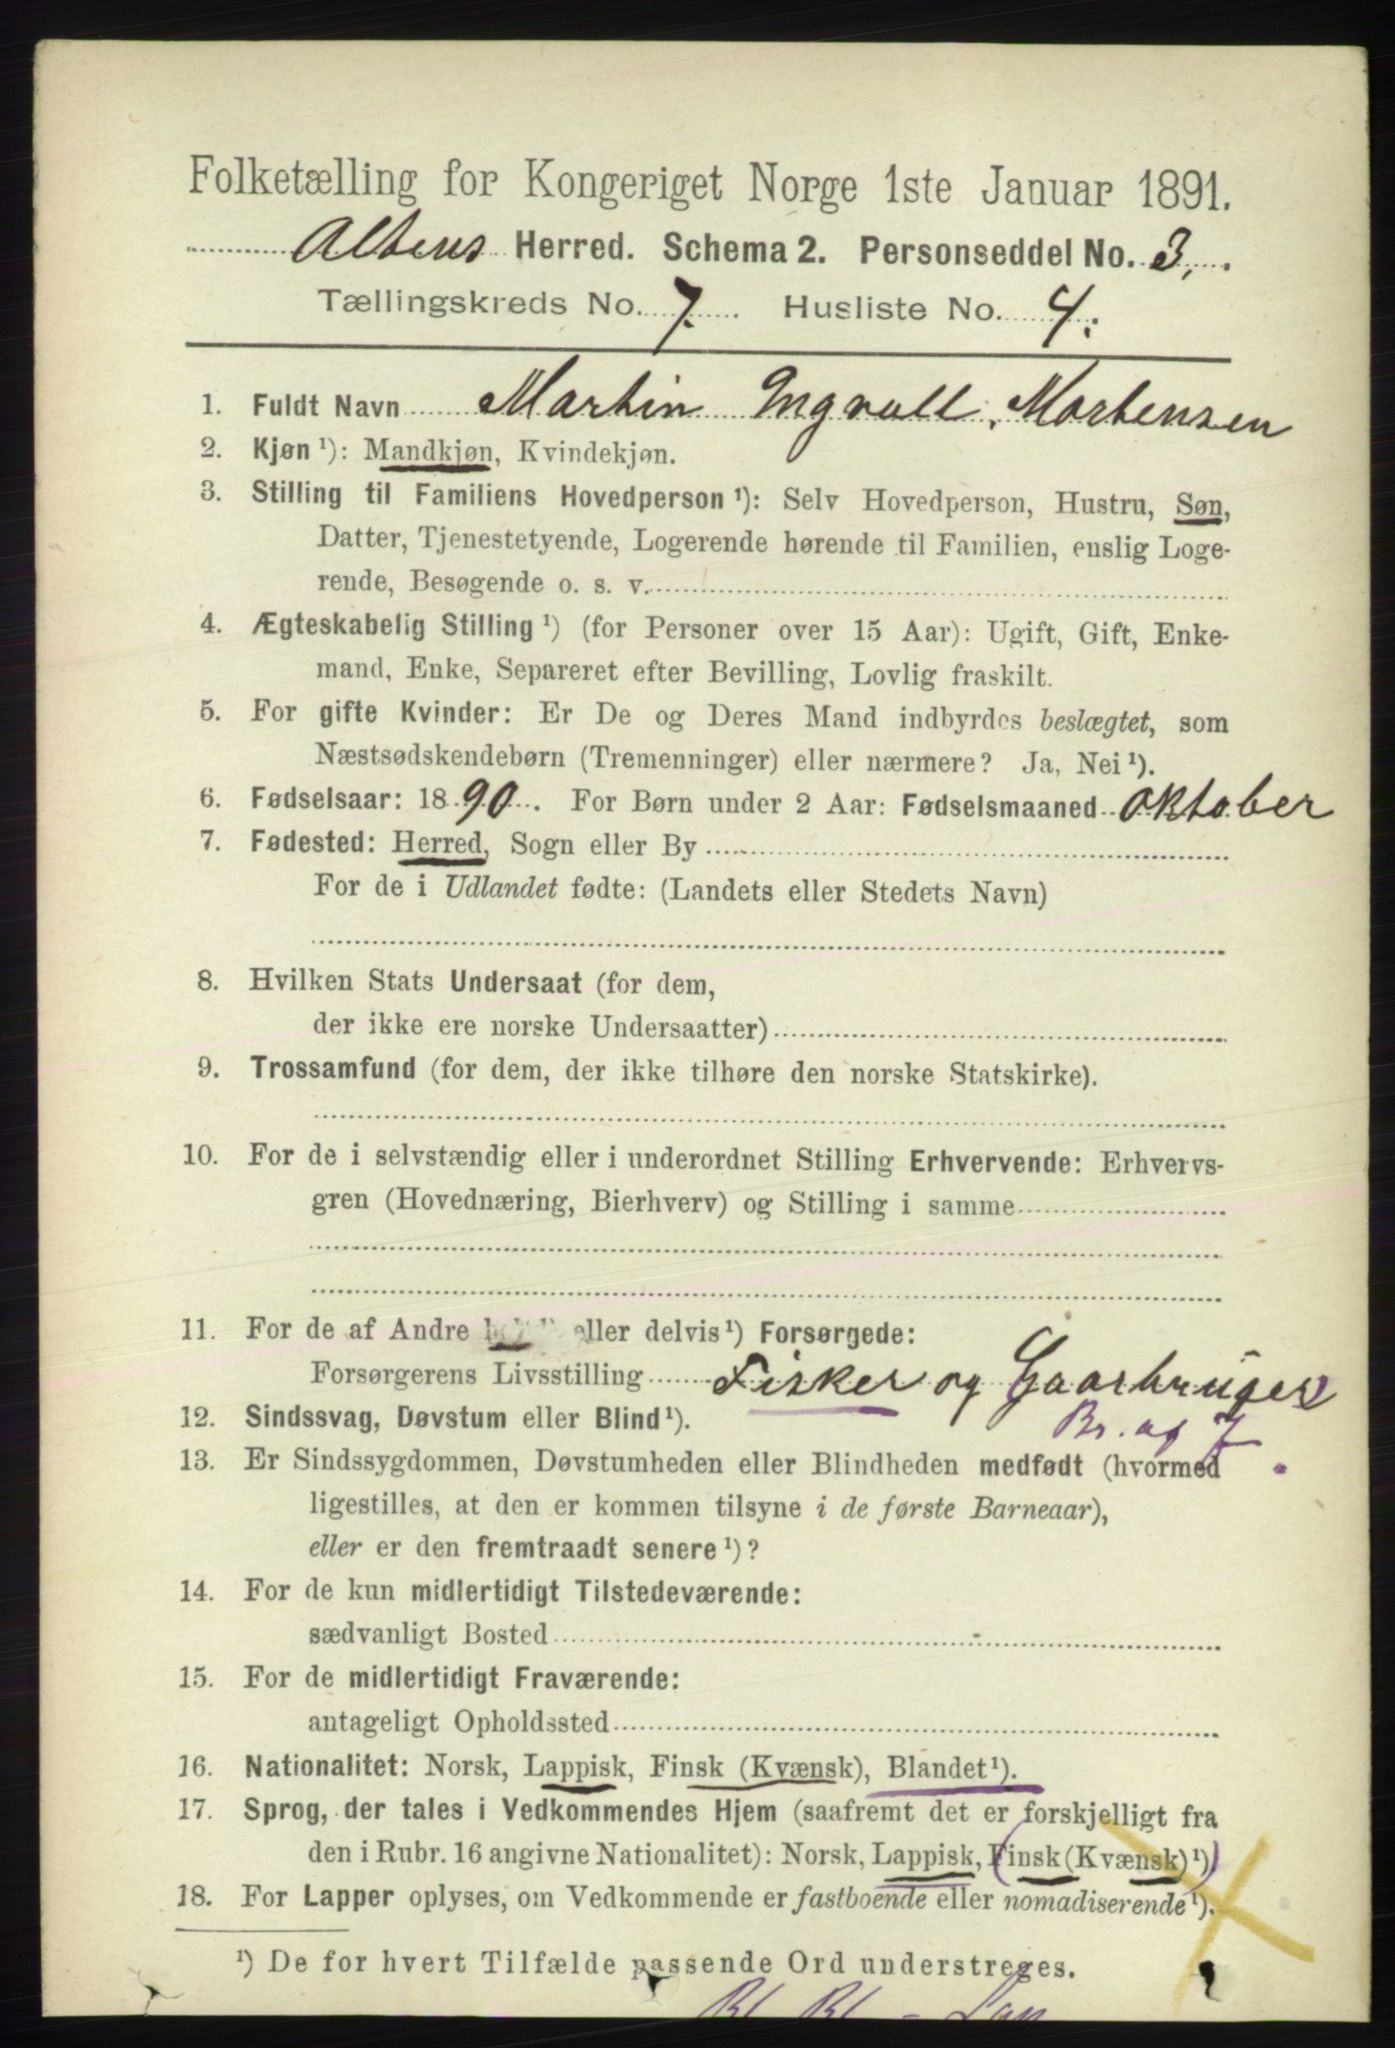 Folketælling for Kongeriget Norge 1ste Januar 1891.
Altens Herred. Schema 2. Personseddel No. 3.
Tællingskreds No. 7. Husliste No. 4.
1. Fuldt Navn Martin Ingvall Mortensen
2. Kjøn ¹): Mandkjøn, Kvindekjøn.
3. Stilling til Familiens Hovedperson ¹): Selv Hovedperson, Hustru, Søn,
Datter, Tjenestetyende, Logerende hørende til Familien, enslig Loge-
rende, Besøgende o. s. v.
4. Ægteskabelig Stilling ¹) (for Personer over 15 Aar): Ugift, Gift, Enke-
mand, Enke, Separeret efter Bevilling, Lovlig fraskilt.
5. For gifte Kvinder: Er De og Deres Mand indbyrdes beslægtet, som
Næstsødskendebørn (Tremenninger) eller nærmere? Ja, Nei ¹).
6. Fødselsaar: 1890. For Børn under 2 Aar: Fødselsmaaned oktober
7. Fødested: Herred, Sogn eller By
For de i Udlandet fødte: (Landets eller Stedets Navn)
8. Hvilken Stats Undersaat (for dem,
der ikke ere norske Undersaatter)
9. Trossamfund (for dem, der ikke tilhøre den norske Statskirke).
10. For de i selvstændig eller i underordnet Stilling Erhvervende: Erhvervs-
gren (Hovednæring, Bierhverv) og Stilling i samme
11. For de af Andre eller delvis ¹) Forsørgede:
Forsørgerens Livsstilling Fisker og Gaarbruger
Br. og F
12. Sindssvag, Døvstum eller Blind ¹).
13. Er Sindssygdommen, Døvstumheden eller Blindheden medfødt (hvormed
ligestilles, at den er kommen tilsyne i de første Barneaar),
eller er den fremtraadt senere ¹)?
14. For de kun midlertidigt Tilstedeværende:
sædvanligt Bosted
15. For de midlertidigt Fraværende:
antageligt Opholdssted
16. Nationalitet: Norsk, Lappisk, Finsk (Kvænsk), Blandet ¹).
17. Sprog, der tales i Vedkommendes Hjem (saafremt det er forskjelligt fra
den i Rubr. 16 angivne Nationalitet): Norsk, Lappisk, Finsk (Kvænsk) ¹)
18. For Lapper oplyses, om Vedkommende er fastboende eller nomadiserende ¹).
¹) De for hvert Tilfælde passende Ord understreges.
Bl. Bl. - Lap